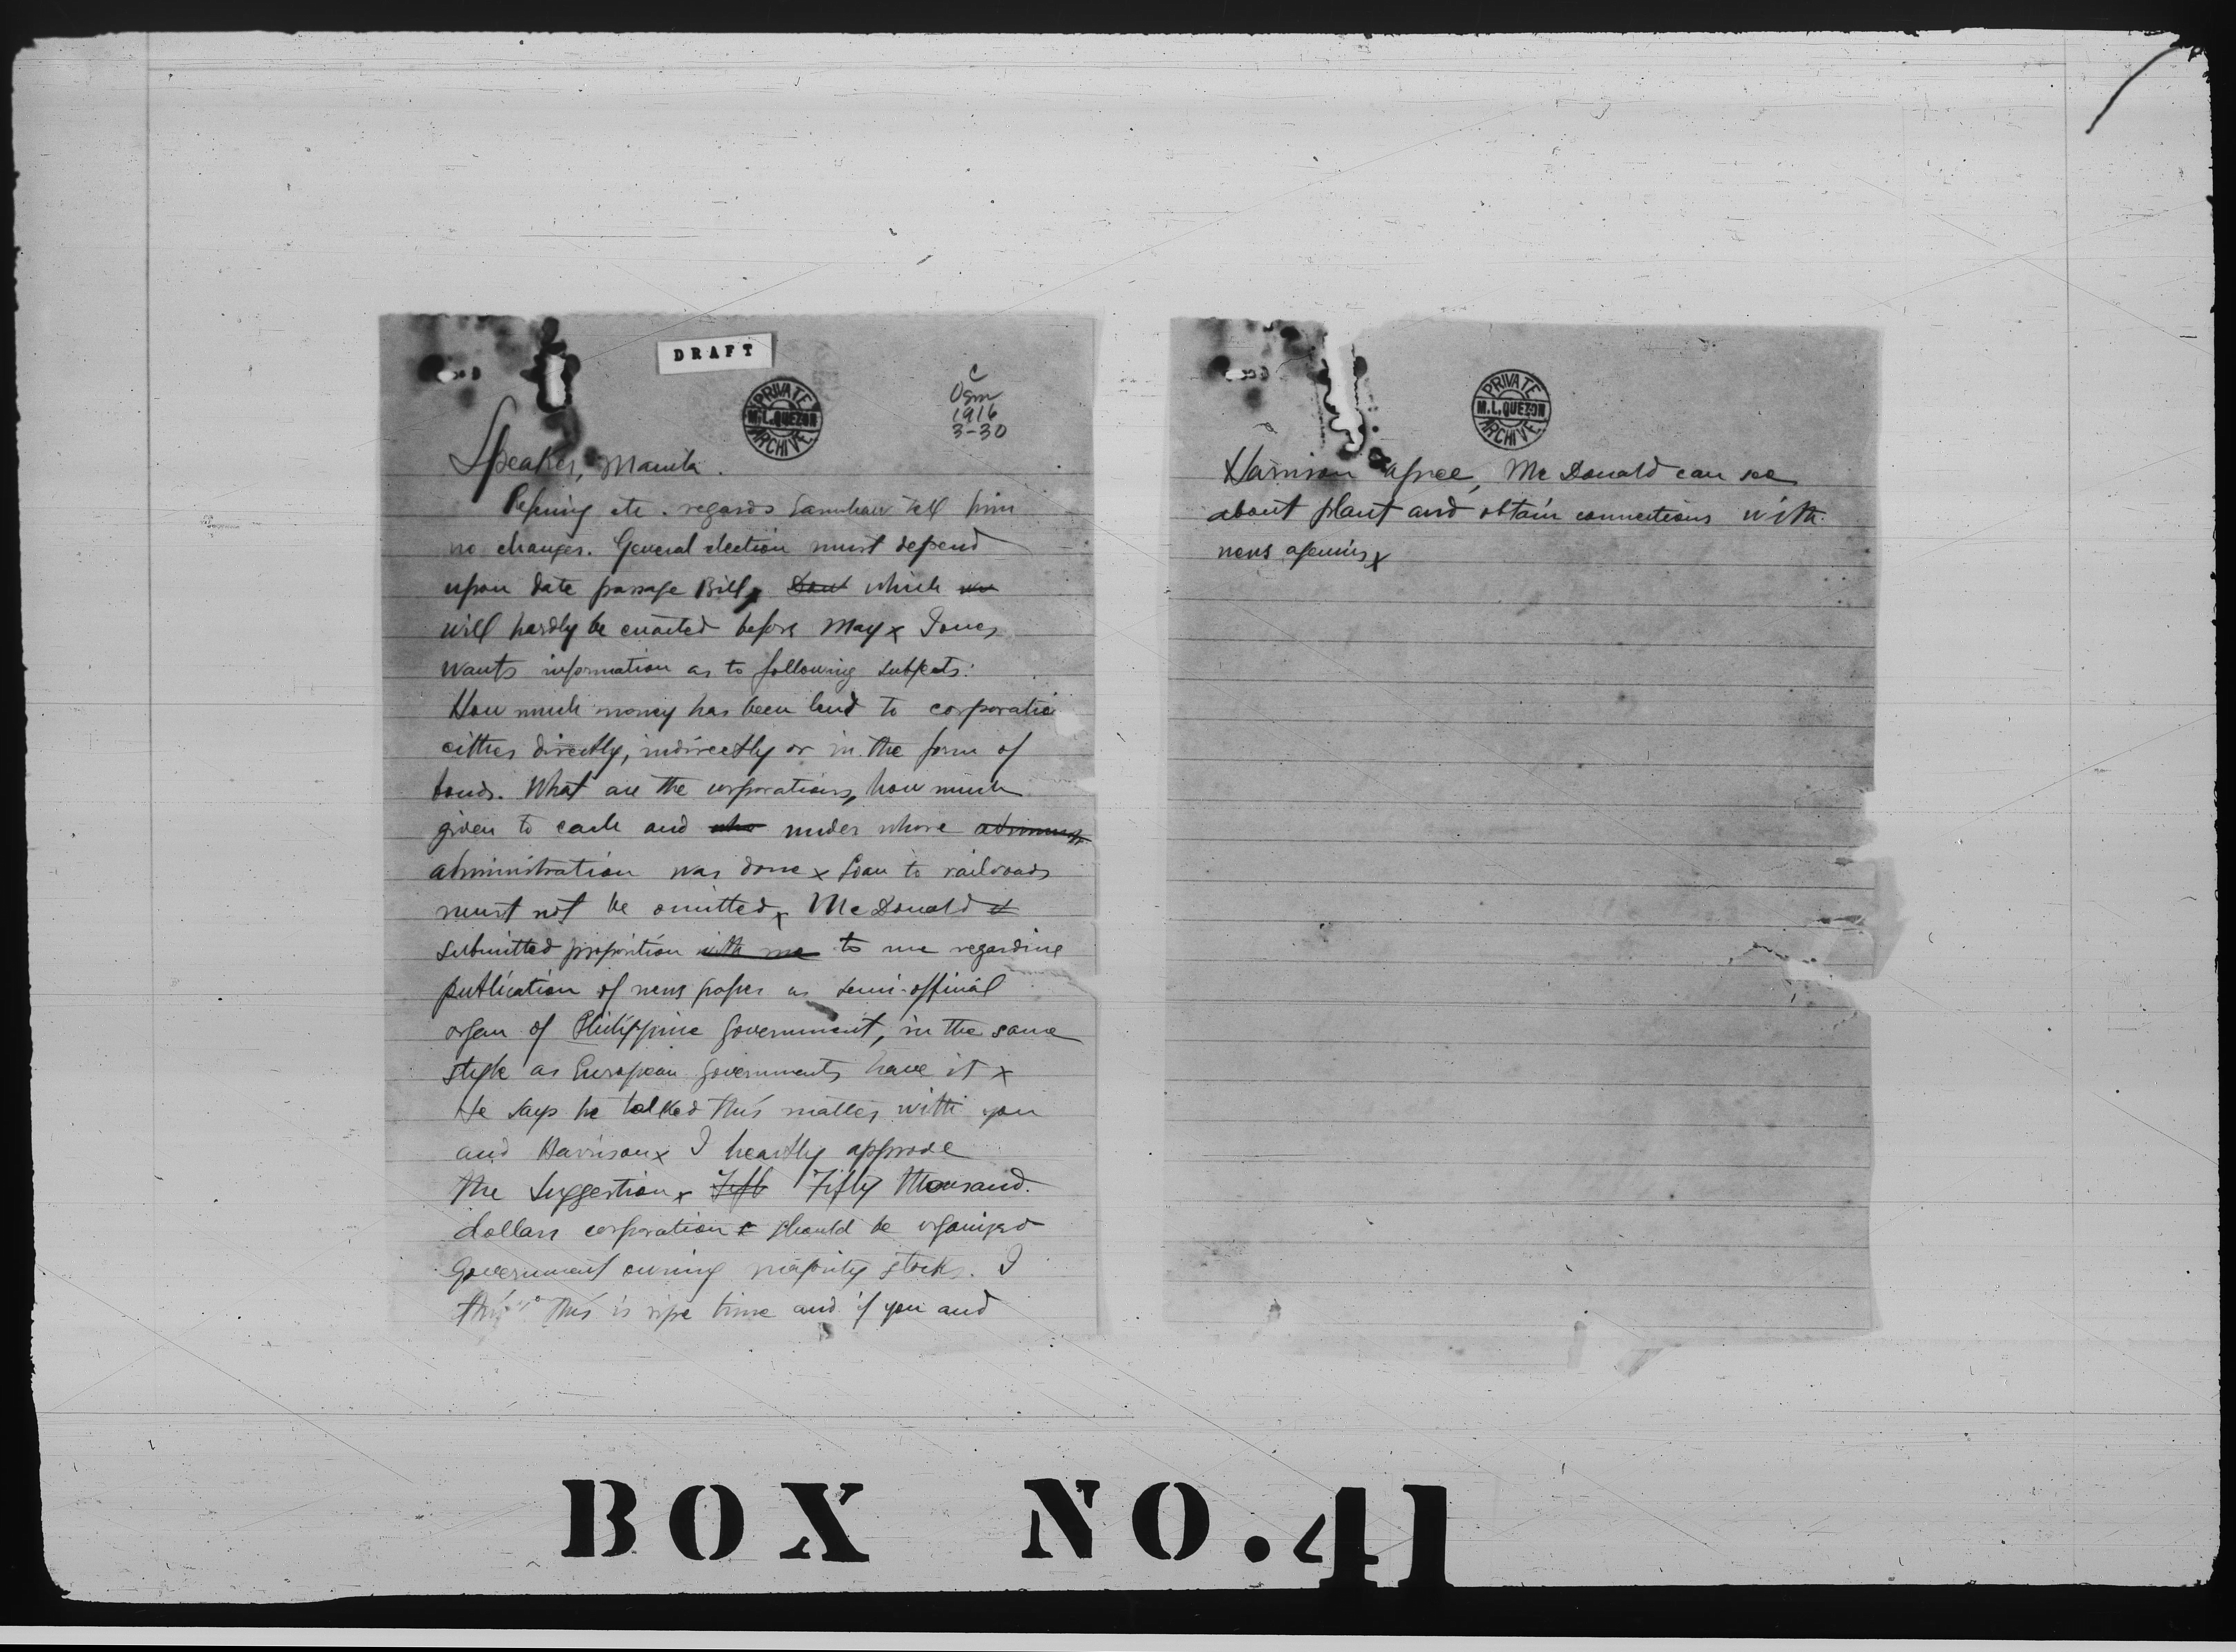 DRAFT
PRIVATE
M.L.QUEZON
ARCHIVE
C
Osm
1916
3-30
Speaker, Manila.
Refering etc. regards tell him
no changes. General election must depend
upon date passage Bill, Dont which
will hardly be enacted before May x Jones
wants information as to following subjects:
How much money has been lend to corporatio
either directly, indirectly or in the form of
bonds. What are the corporations, how much
given to each and who under whose administ
administration was done x Loan to railroads
must not be omitted x McDonald
submitted proposition with me to me regarding
publication of news paper as semi-official
organ of Philippine Government, in the same
style as European Governments have it x
He says he talked this matter with you
and Harrison x I heartly approve
the suggestion x Fift Fifty thousand
dollars corporation should be organized
Government owning majority stocks. I
this is ripe time and if you and
PRIVATE
M.L.QUEZON
ARCHIVE
Harrison agree, McDonald can see
about plant and obtain connections with
news agencies x
BOX NO.41